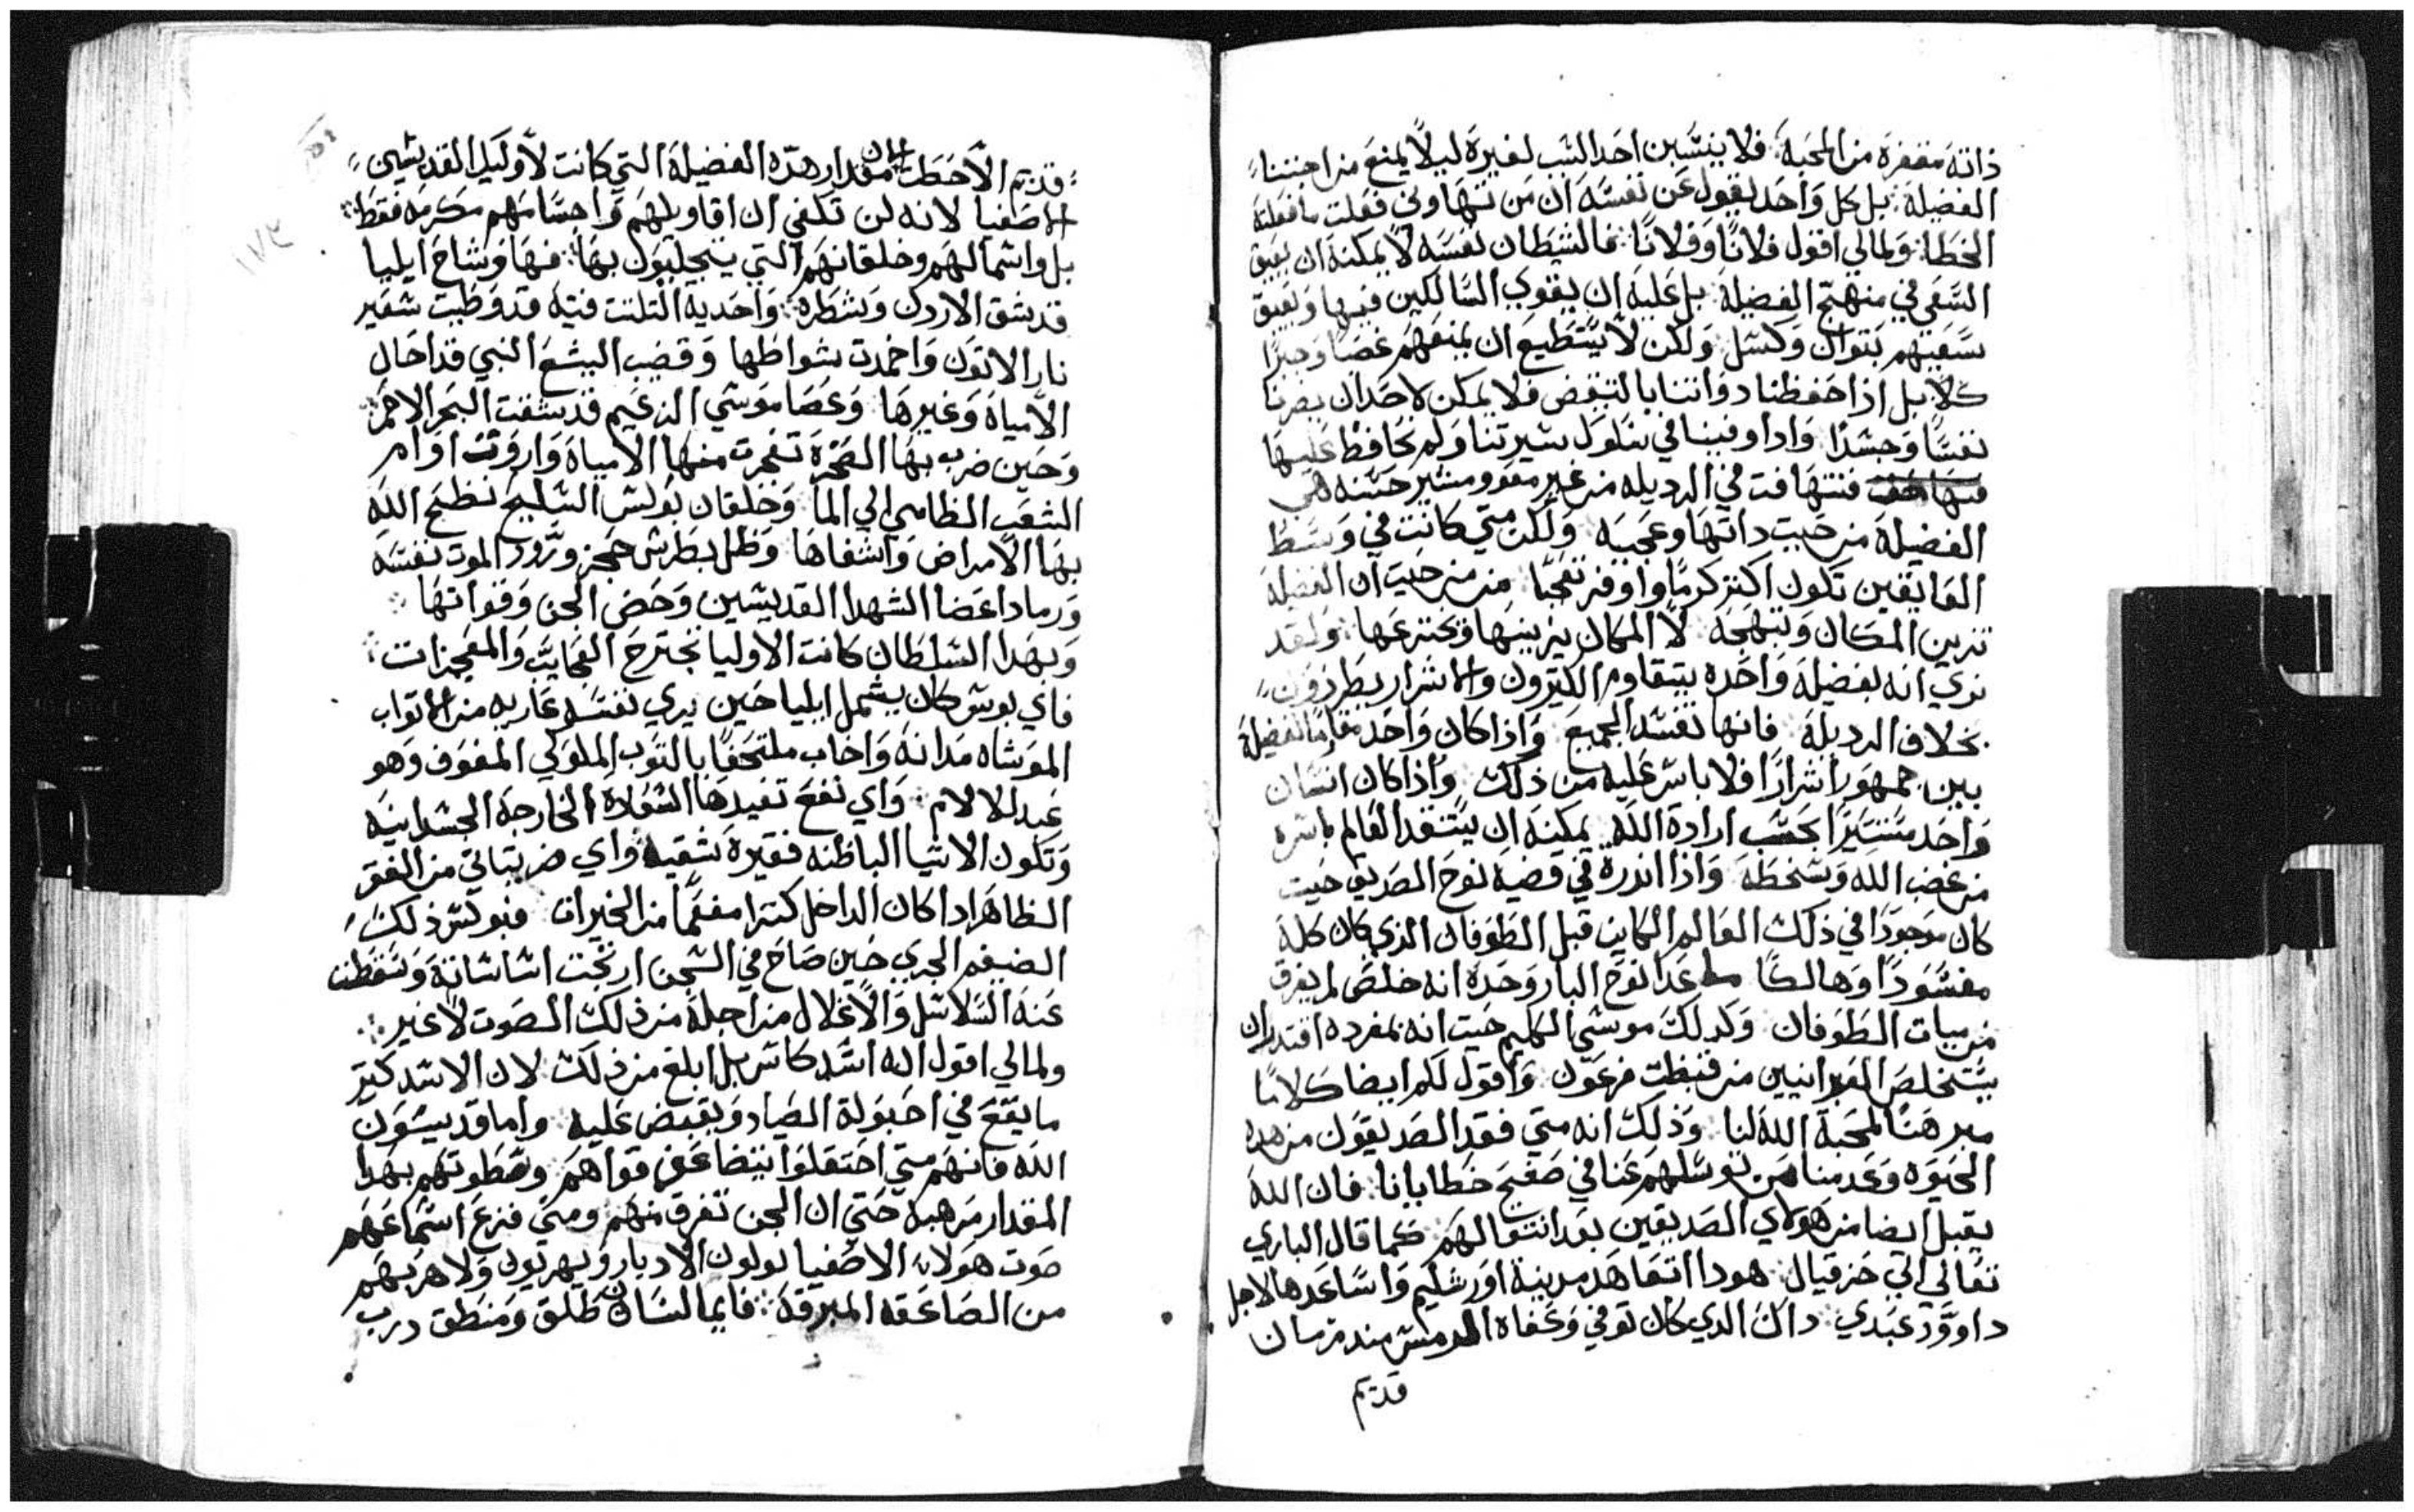 ذاته مقفره من المحبه فلا ينسبن احد السب لغيره ليلا يمنع من اجتنا
الفضيله بل كل واحد ليقول عن نفسه ان من تهاوني فعلت ما فعلته
الخطا ولمالي اقول فلانا وفلانا فالشيطان نفسه لا يمكنه ان يعيق
السعي في منهج الفضيله بل عليه ان يقوي السالكين فيها ويعيق
سعيتهم بتوان وكسل ولكن لا يستطيع ان يمنعهم غصبا وجبرا
كلا بل اذا حفظنا دواتنا بالتيقض فلا يمكن لاحد ان يضرنا
نفسا وجسدا وادا وفينا في سلوك سيرتنا ولم نحافظ عليها
فنتهافت في الرديله من غير مقوو مشير حسنه هي
الفضيله من حيت داتها وعجبه ولكن متي كانت في وسط
العايقين تكون اكتر كرما واوفر تعجبا من حيت ان الفضيله
تزين المكان وتبهجه لا المكان يزينها ويخترعها ولقد
نري انه بفضيله واحده يتقاوم الكتيرون والاشرار يطردون
بخلاف الرديله فانها تفسد الجميع واذا كان واحد مقاما لفضيله
بين جمهور اشرارا فلا باس عليه من ذلك واذا كان انسان
واحد مستيرا بحسب ارادة الله يمكنه ان يستنقد العالم باسره
من غضب الله وسخطه واذا اندره في قضية نوح الصديق حيت
كان موجودا في ذلك العالم الكاين قبل الطوفان الذي كان كله
مفسودا وهالكا ما عدا نوح البار وحده انه خلص لم يغرق
من ميات الطوفان وكدلك موسي الكليم حيت انه بمفرده اقتدر ان
يستخلص العبرانيين من قبطت فرعون واقول لكم ايضا كلاما
مبرهنا لمحبة الله لنا وذلك انه متي فقد الصديقون من هده
الحيوه وعدمنا من توسلهم عنا في صفح خطايانا فان الله
يقبل ايضا من هولاي الصديقين بعد انتقالهم كما قال الباري
تعالي الي حزقيال هودا اتعاهد مدينة اورشليم واساعدها لاجل
داوود عبدي داك الدي كان توفي وعفاه الرمس مند زمان
قديم
قديم الاخطت مقدار هذه الفضيله التي كانت لاوليك القديسين
الاصفيا لانه لن تكفي ان اقاويلهم واجسامهم مكرمه فقط
بل واشمالهم وخلقانهم التي يتجلببون بها فها وشاح ايليا
قد شق الاردن وشطره واحدية التلتت فتية قد وطيت سعير
نار الاتون واخمدت شواظها وقضيب اليشع النبي قد احال
الامياه وغيرها وعصا موسي الزعيم قد شقت البحر الاحمر
وحين ضرب بها الصخره تفجرت منها الامياه واروت اوام
الشعب الظامي الي الما وخلقان بولس السليح نظح الله
بها الامراض واشفاها وظل بطرس حجز ورود الموت نفسه
ورماد اعضا الشهدا القديسين وحض الجن وقواتها
وبهدا السلطان كانت الاوليا تجترح العجايب والمعجزات
فاي بوس كان يشمل ايليا حين يري نفسه عاريه من الاتواب
الموشاه مدانه واخاب ملتحفا بالتوب الملوكي المفوف وهو
عبد للالام واي نفع تفيدها السعاده الخارجه الجسدانيه
وتكون الاشيا الباطنه فقيره شقيه واي ضر يتاتي من الفقر
الظاهر ادا كان الداخل كنزا مفعما من الخيرات فبولس ذلك
الضيغم الجري حين صاح في السجن ارتجت اساساته وسقطت
عنه السلاسل والاغلال من اجله من ذلك الصوت لا غير
ولمالي اقول انه اسد كاسر بل ابلغ من ذلك لان الاسد كتير
ما يقع في احبولة الصياد ويقبض عليه واما قديسون
الله فانهم متي احتقلوا تتضاعف قواهم وسطوتهم بهدا
المقدار مرهبه حتي ان الجن تفرق منهم ومتي قرع اسماعهم
صوت هولاء الاصفيا يولون الادبار ويهربون ولا هربهم
من الصاعقه المبرقه فايما لسان طلق ومنطق درب